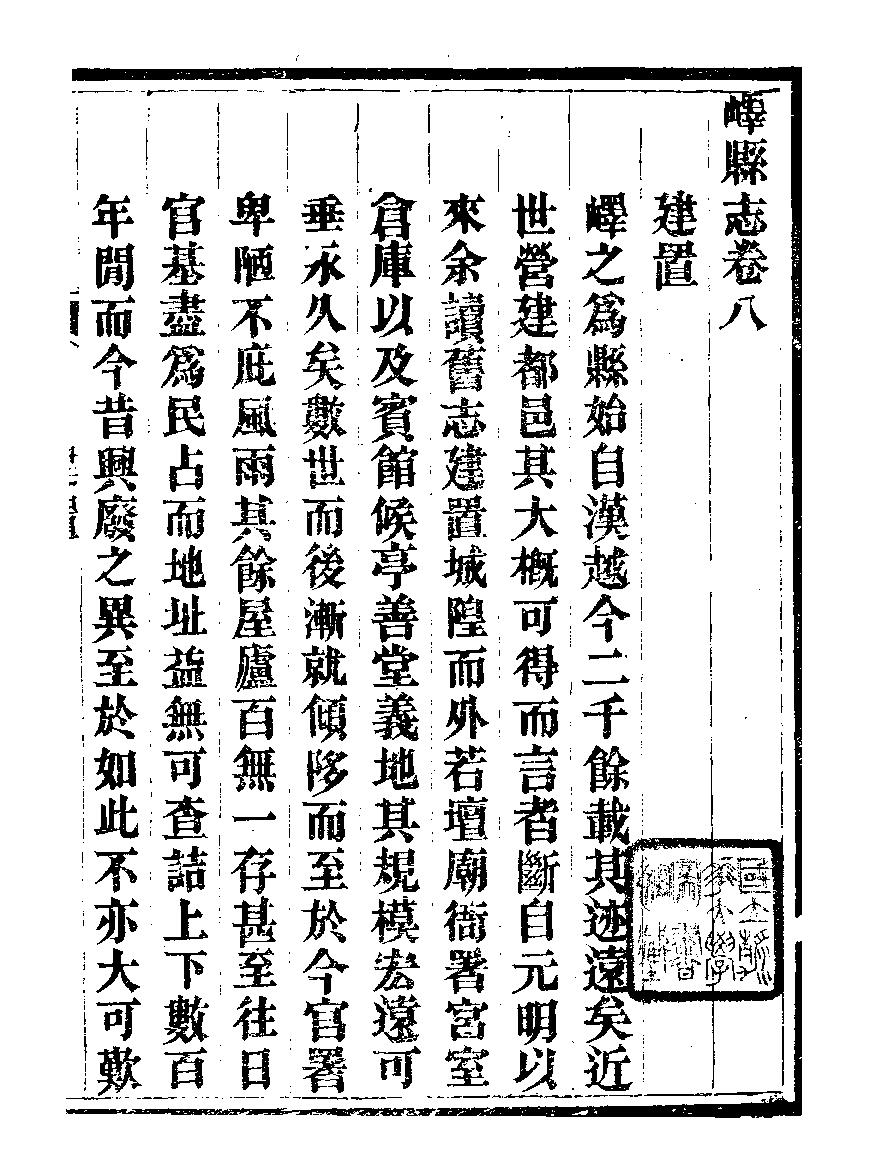 嶧縣志卷八
建置
嶧之爲縣始自漢越今二千餘載其迹遠矣近
世營建都邑其大概可得而言者斷自元明以
來余讀舊志建置城隍而外若壇廟衙署宮室
倉庫以及賓館候亭善堂義地其規模宏遠可
垂永久矣數世而後漸就傾陊而至於今官署
卑陋不庇風雨其餘屋廬百無一存甚至往日
官基盡爲民占而地址益無可查詰上下數百
年閒而今昔興廢之異至於如此不亦大可歎